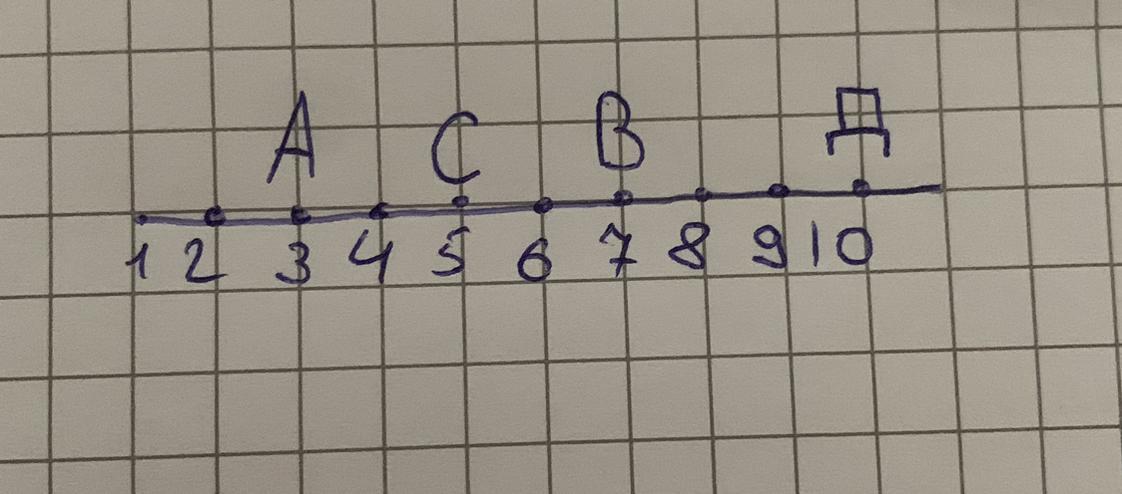 А С В Д
1 2 3 4 5 6 7 8 9 10